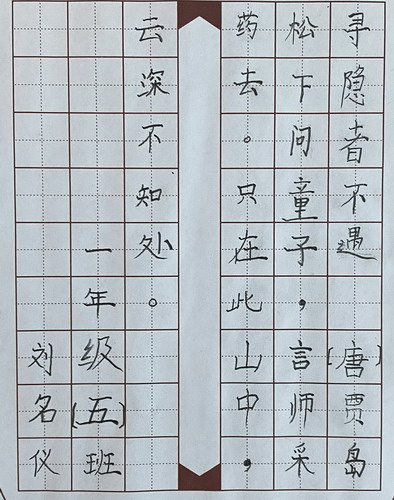 寻隐者不遇[唐]贾岛
松下问童子，言师采
药去。只在此山中，
云深不知处。
一年级[五]班
刘名仪